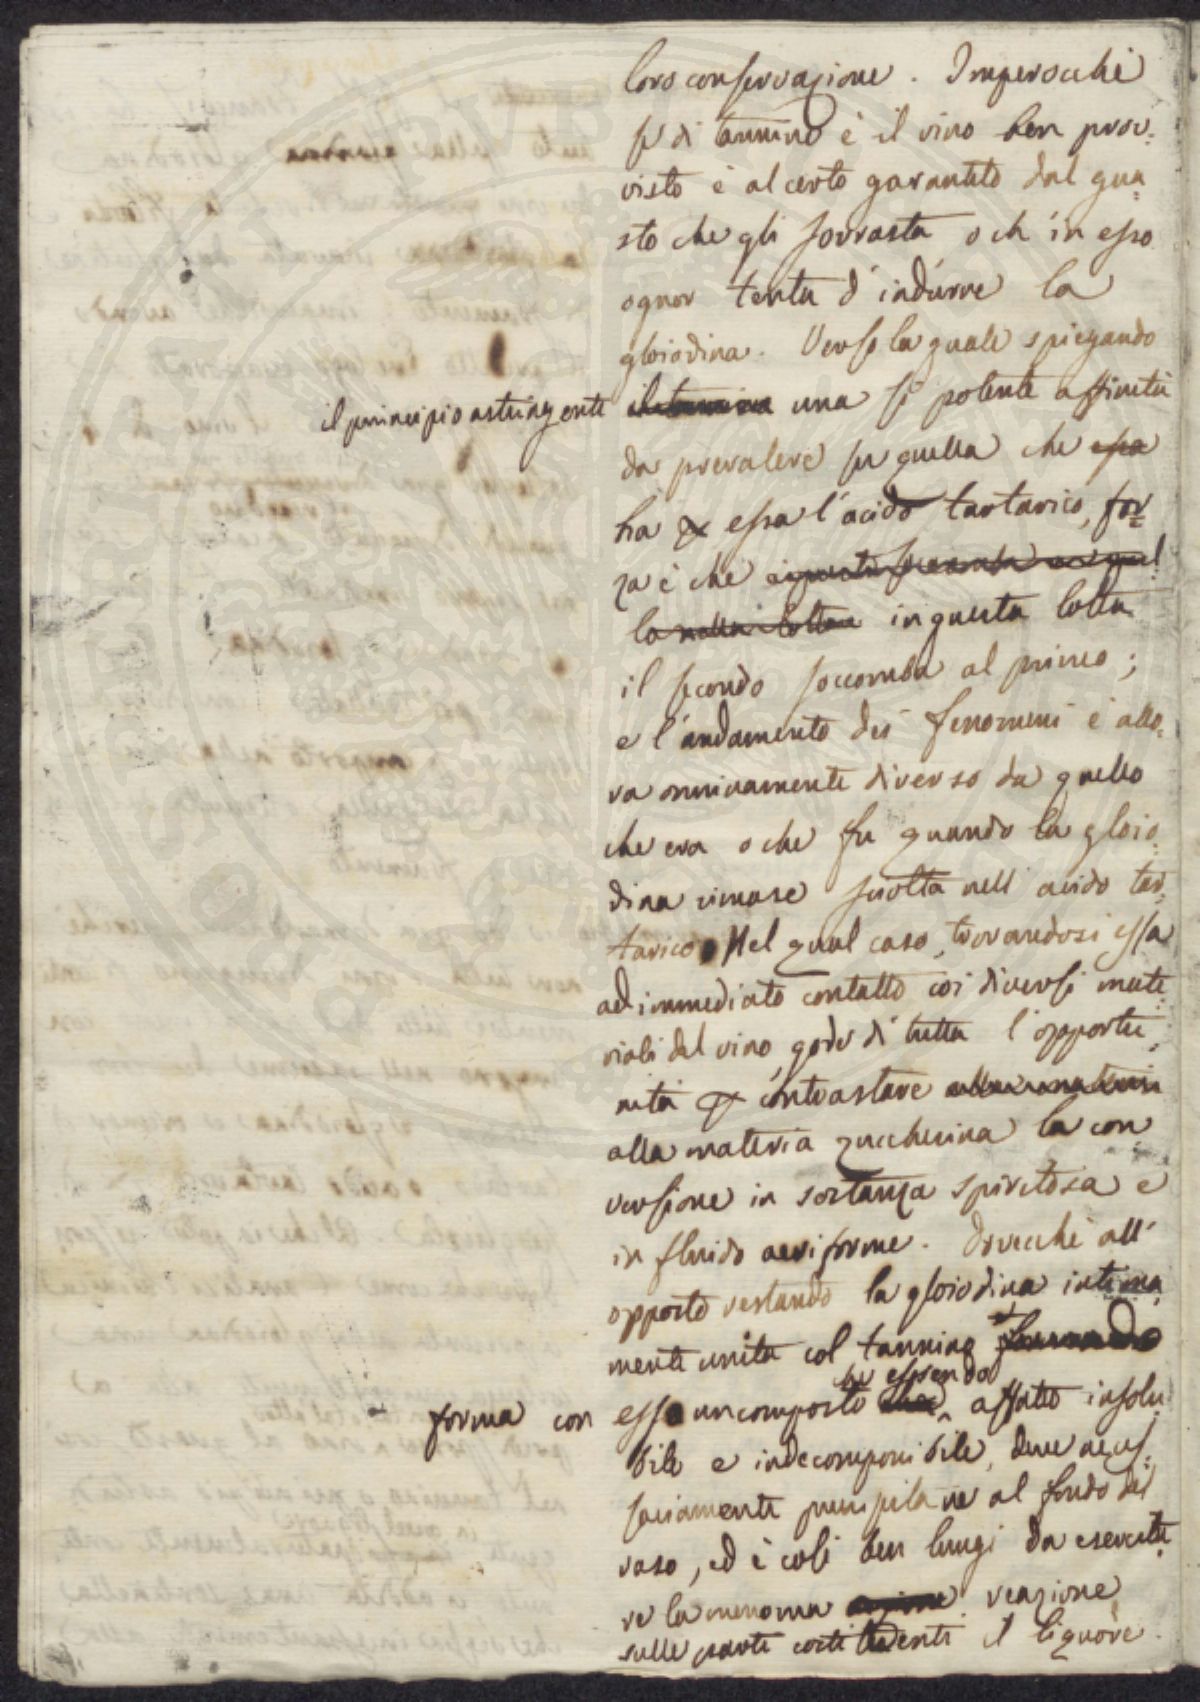 loro conservazione. Imperocchè
se di tannino è il vino ben prov-
visto è al certo garantito dal gua=
sto che gli sovrasta o ch' in esso
ognor tenta d' indurre la
gloiodina. Verso la quale spiegando
il principio astringente il tannino una sì potente affinità
da prevalere su quella che essa
ha per essa l' acido tartarico, for=
za è che in questa lotta
il secondo soccomba al primo;
e l' andamento dei fenomeni è allo-
ra onninamente diverso da quello
che era o che fu quando la gloio-
dina rimase sciolta nell' acido tar-
tarico. Nel qual caso, trovandosi essa
ad immediato contatto coi diversi mate-
riali del vino, gode di tutta l' opportu-
nità per contrastare
alla materia zuccherina la con
versione in sostanza spiritosa e
in fluido aeriforme. Dovecchè all'
opposto restando la gloiodina intima-
mente unita col tannino formando
essendo
forma con esso un composto che affatto insolu
bile e indecomponibile, deve neces-
sariamente precipitare al fondo del
vaso, ed è così ben lungi da esercita-
re la menoma azione reazione
sulle parti costituenti il liquore.